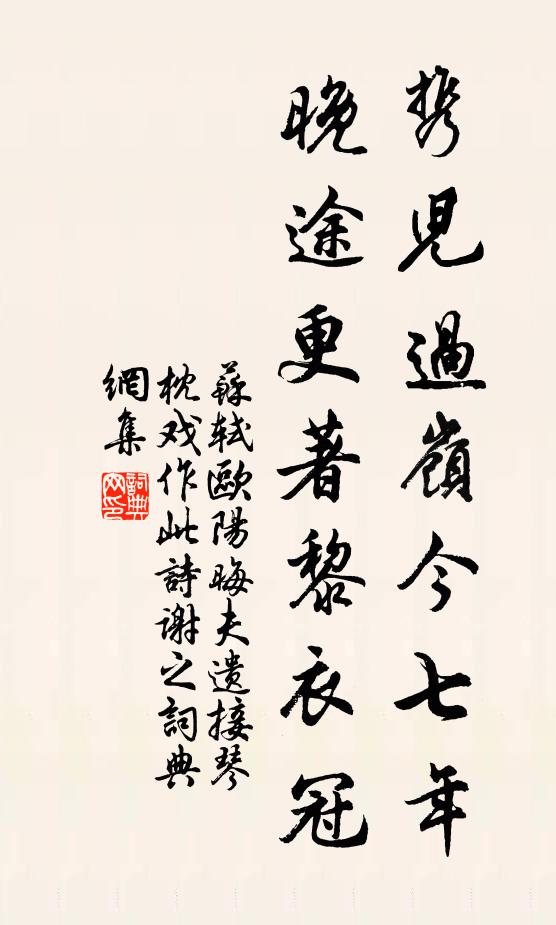 携児過嶺今七年
晚途更著黎衣冠
蘇軾歐陽晦夫遺接琴
枕戏作此詩谢之詞典
網集
詞典
网印